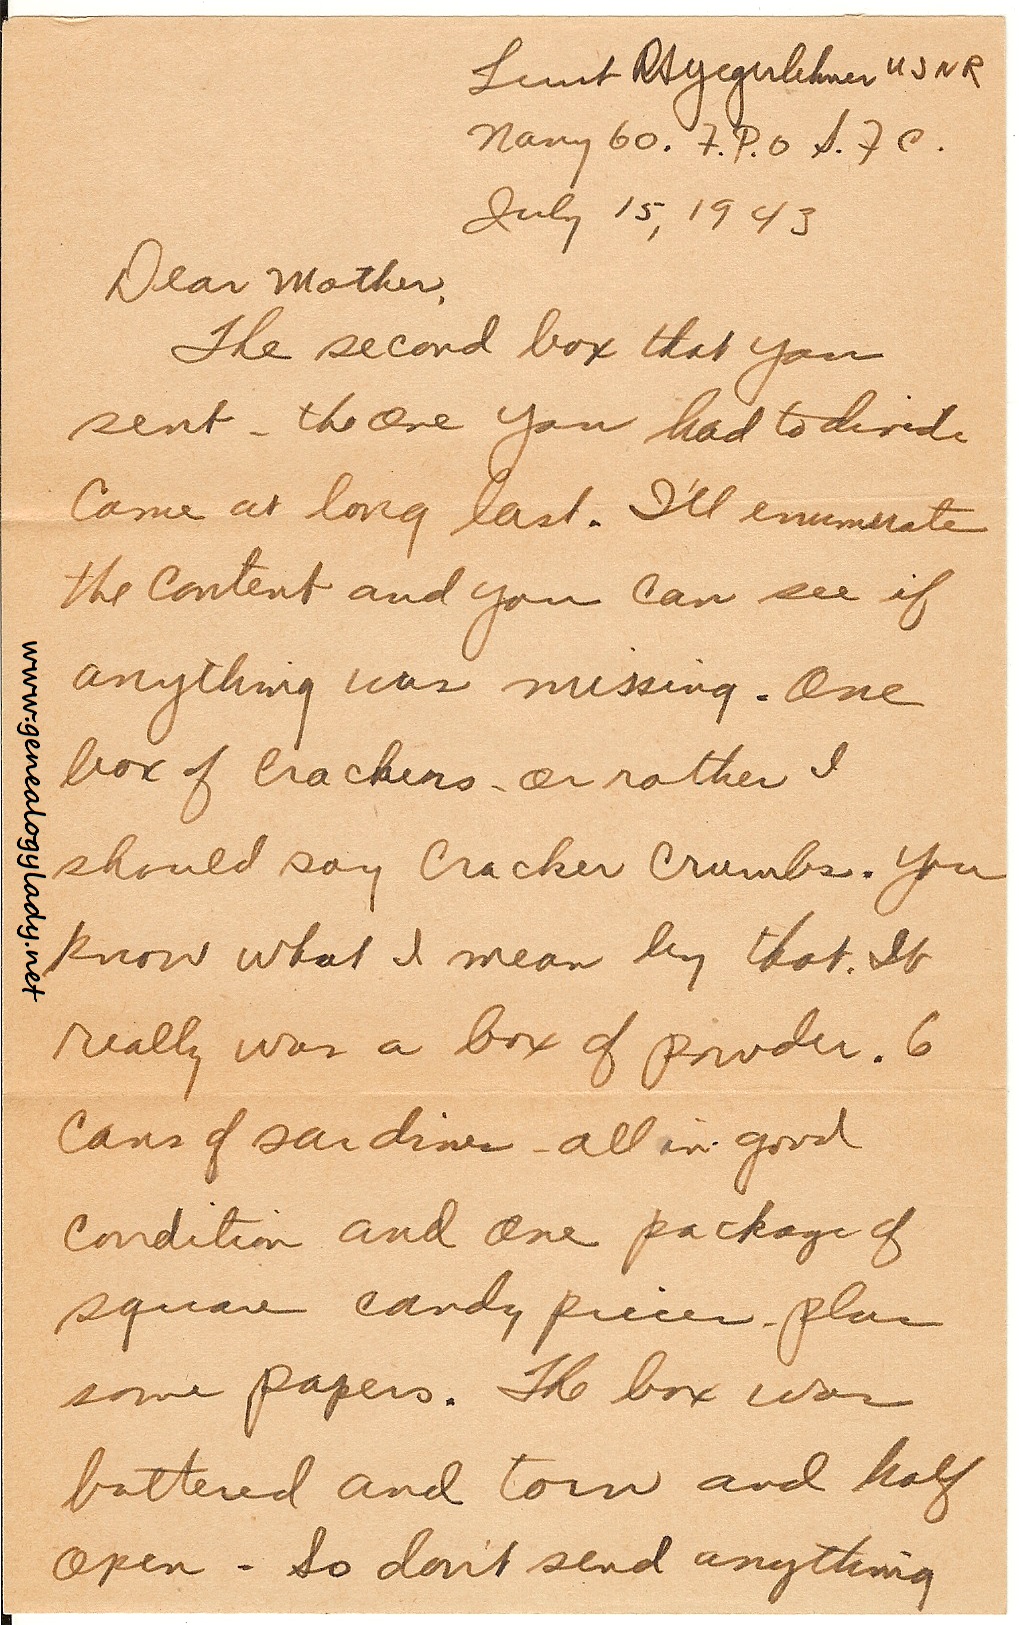 Lieut RSYegerlehner USNR
Navy 60. F.P.O S.F C.
July 15, 1943
Dear Mother,
The second box that you
sent - the one you had to divide
came at long last. I'll enumerate
the content and you can see if
anything was missing. One
box of crackers - or rather I
should say cracker crumbs. You
know what I mean by that. It
really was a box of powder. 6
cans of sardines - all in good
condition and one package of
square candy pieces - plus
some papers. The box was
battered and torn and half
open - So don't send anything
www.genealogylady.net